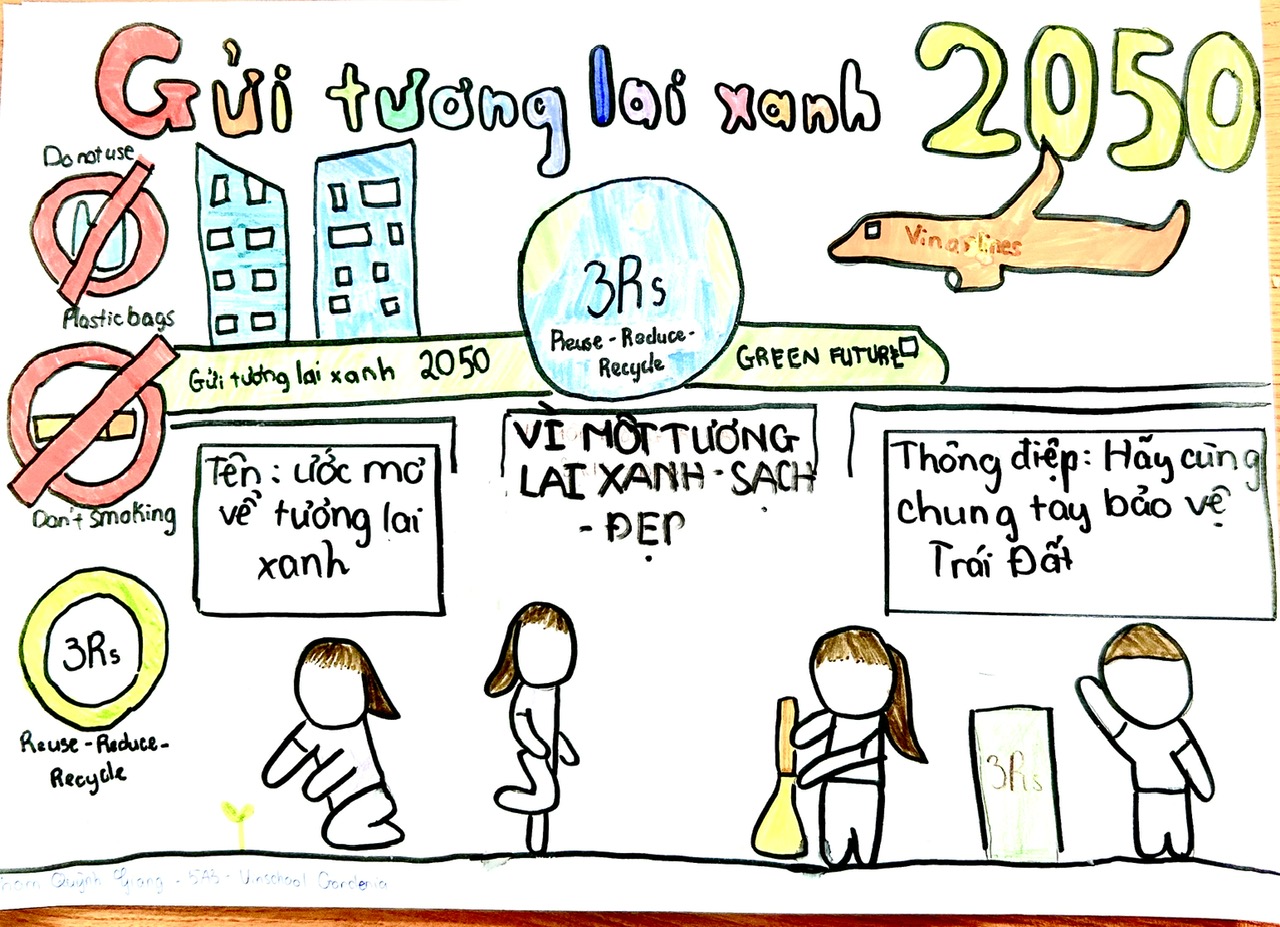 Gửi tương lai xanh 2050
Do not use
Plastic bags
Don't smoking
3Rs
Reuse - Reduce -
Recycle
Vinairlines
3Rs
Reuse - Reduce -
Recycle
Gửi tương lai xanh 2050
GREEN FUTURE
Tên: ước mơ
về tương lai
xanh
VÌ MỘT TƯƠNG
LAI XANH - SẠCH
- ĐẸP
Thông điệp: Hãy cùng
chung tay bảo vệ
Trái Đất
3Rs
Quỳnh Giang - 5A3 - Vinschool Gardenia